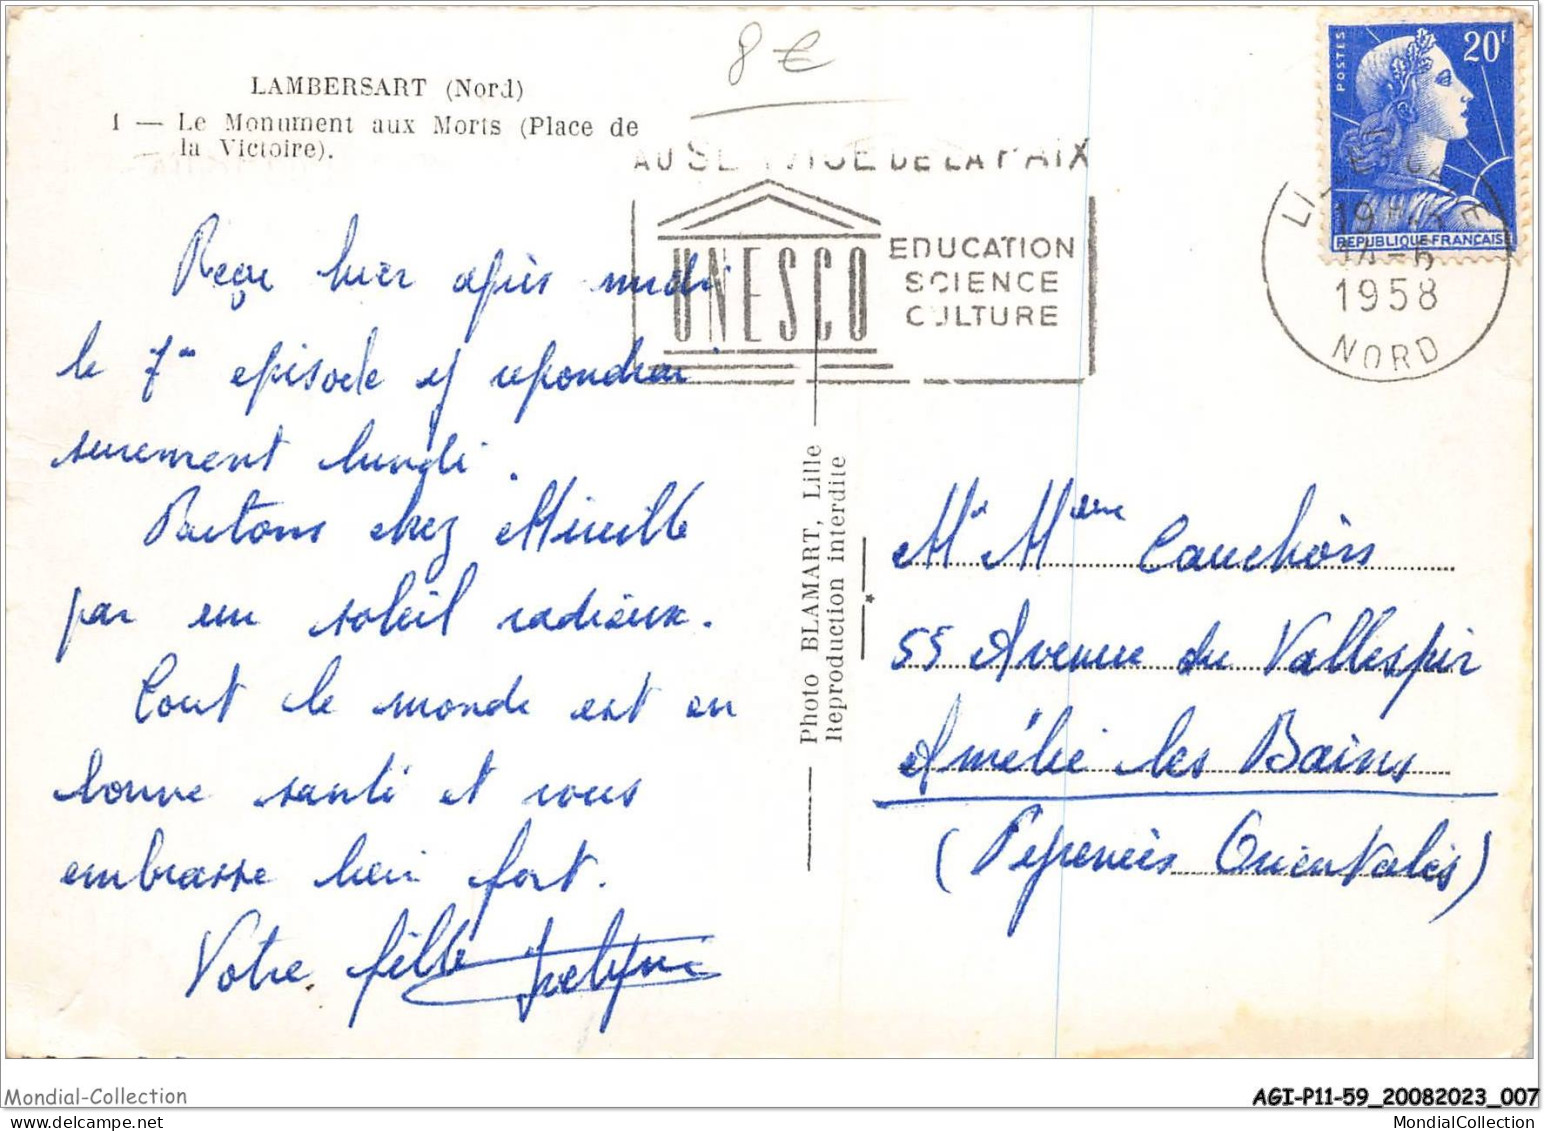 8€
LAMBERSART (Nord)
1 — Le Monument aux Morts (Place de
la Victoire).
AU SERVICE DE LA PAIX
UNESCO
EDUCATION
SCIENCE
CULTURE
POSTES
20F
REPUBLIQUE FRANÇAISE
LILLE GARE
19H
1958
NORD
Reçu hier après midi
le 7me episode y repondrai
surement lundi.
Partons chez Mireille
par un soleil radieux.
Tout le monde est en
bonne santé et vous
embrasse bien fort.
Votre fille Evelyne
Photo BLAMART, Lille
Reproduction interdite
Mr Mme Cauchois
55 Avenue du Vallespir
Amélie les Bains
(Pyrenées Orientales)
Mondial-Collection
AGI-P11-59_20082023_007
MondialCollection